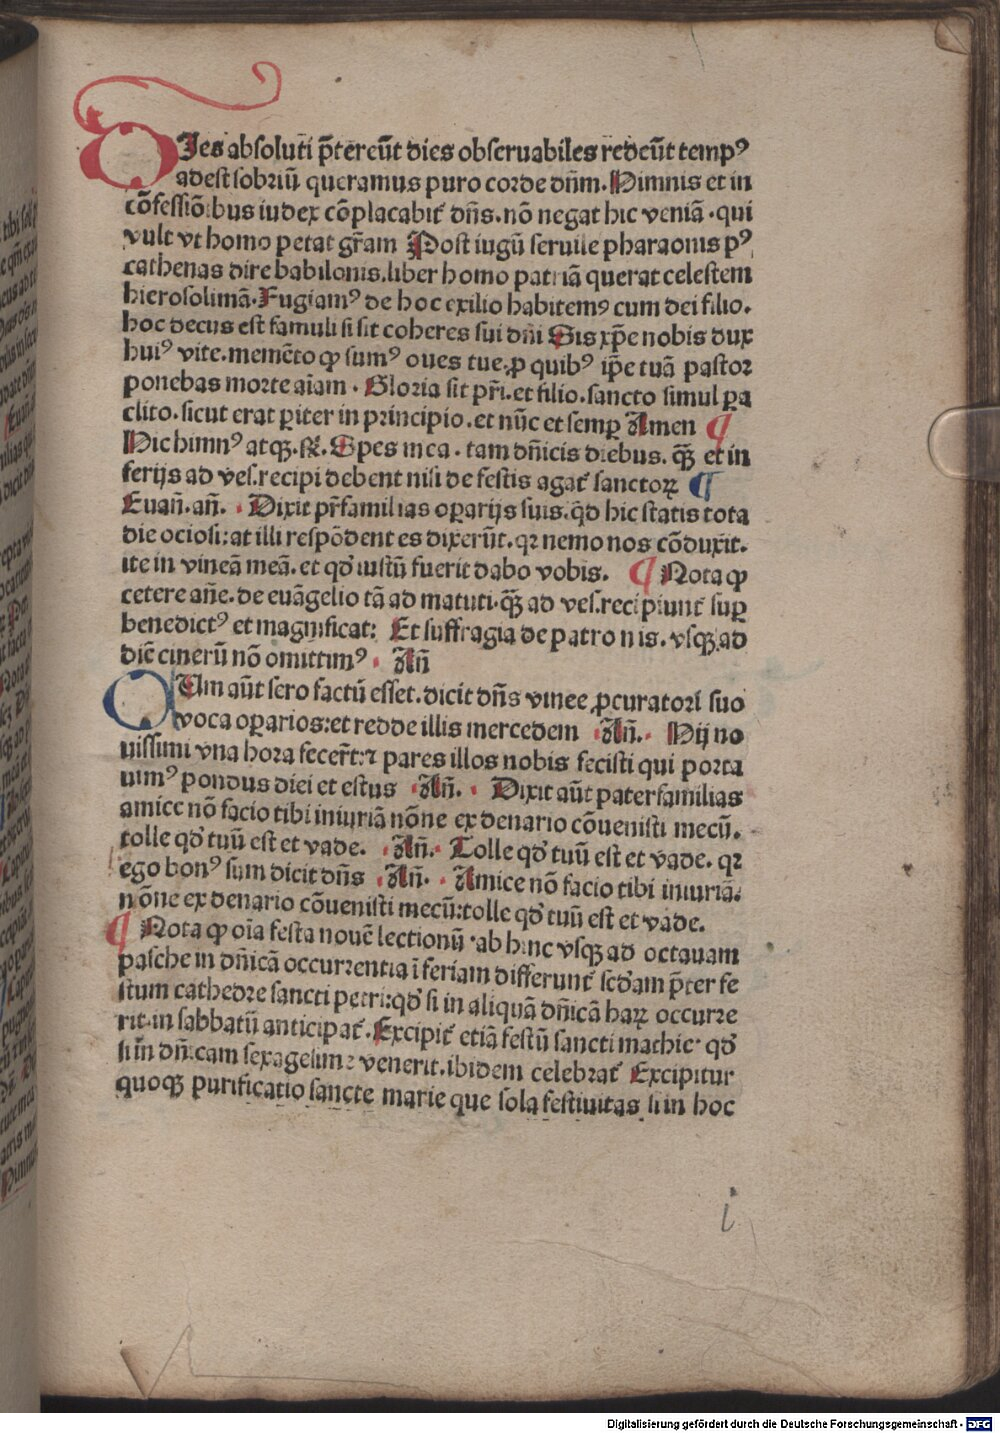 DIes absoluti p̄tereūt dies obseruabiles redeūt tempꝰ
adest sobriū queramus puro corde dn̄m. Himnis et in
cōfessiōibus iudex cōplacabit᷑ dn̄s. nō negat hic veniā . qui
vult vt homo petat gr̄am Post iugū seruile pharaonis pꝰ
cathenas dire babilonis. liber homo patriā querat celestem
hierosolimā. Fugiamꝰ de hoc exilio habitemꝰ cum dei filio.
hoc decus est famuli si sit coheres sui dn̄i Sis xp̄e nobis dux
huiꝰ vite. memēto ꝙ sumꝰ oues tue. ꝓ quibꝰ ip̄e tuā pastor
ponebas morte aīam . Gloria sit pr̄i. et filio. sancto simul ꝑa
clito. sicut erat ꝑiter in principio. et nūc et semꝑ Amen ¶
Hic himnꝰ atqꝫ. ꝶ. Spes mea . tam dn̄icis diebus. qꝫ̄ et in
ferijs ad ves. recipi debent nisi de festis agat᷑ sanctoꝝ ¶
Euan̄. an̄. Dixit pr̄familias oꝑarijs suis. qd̄ hic statis tota
die ociosi: at illi respōdentes dixerūt. qꝛ nemo nos cōduxit.
ite in vineā meā. et qd̄ iustū fuerit dabo vobis. ¶ Nota ꝙ
cetere an̄e. de euāgelio tā ad matuti. qꝫ̄ ad ves. recipiunt᷑ suꝑ
benedictꝰ et magnificat: Et suffragia de patronis. vsqꝫ ad
diē cinerū nō omittimꝰ . An̄
CUm aūt sero factū esset. dicit dn̄s vinee ꝓcuratori suo
voca oꝑarios: et redde illis mercedem An̄. Hij no
uissimi vna hora fecer̄t: ⁊ pares illos nobis fecisti qui porta
uimꝰ pondus diei et estus An̄. Dixit aūt paterfamilias
amice nō facio tibi iniuriā nōne ex denario cōuenisti mecū.
tolle qd̄ tuū est et vade. An̄. Tolle qd̄ tuū est et vade. qꝛ
ego bonꝰ sum dicit dn̄s An̄. Amice nō facio tibi iniuriā.
nōne ex denario cōuenisti mecū: tolle qd̄ tuū est et vade.
¶ Nota ꝙ oīa festa nouē lectionū ab hinc vsqꝫ ad octauam
pasche in dn̄icā occurrentia ī feriam differunt᷑ scd̄am p̄ter fe
stum cathedre sancti petri: qd̄ si in aliquā dn̄icā haꝝ occurre
rit. in sabbatū anticipat᷑. Excipit᷑ etiā festū sancti mathie. qd̄
si in dn̄icam sexagesime venerit. ibidem celebrat᷑ Excipitur
quoqꝫ purificatio sancte marie que sola festiuitas si in hoc
i
Digitalisierung gefördert durch die Deutsche Forschungsgemeinschaft - DFG